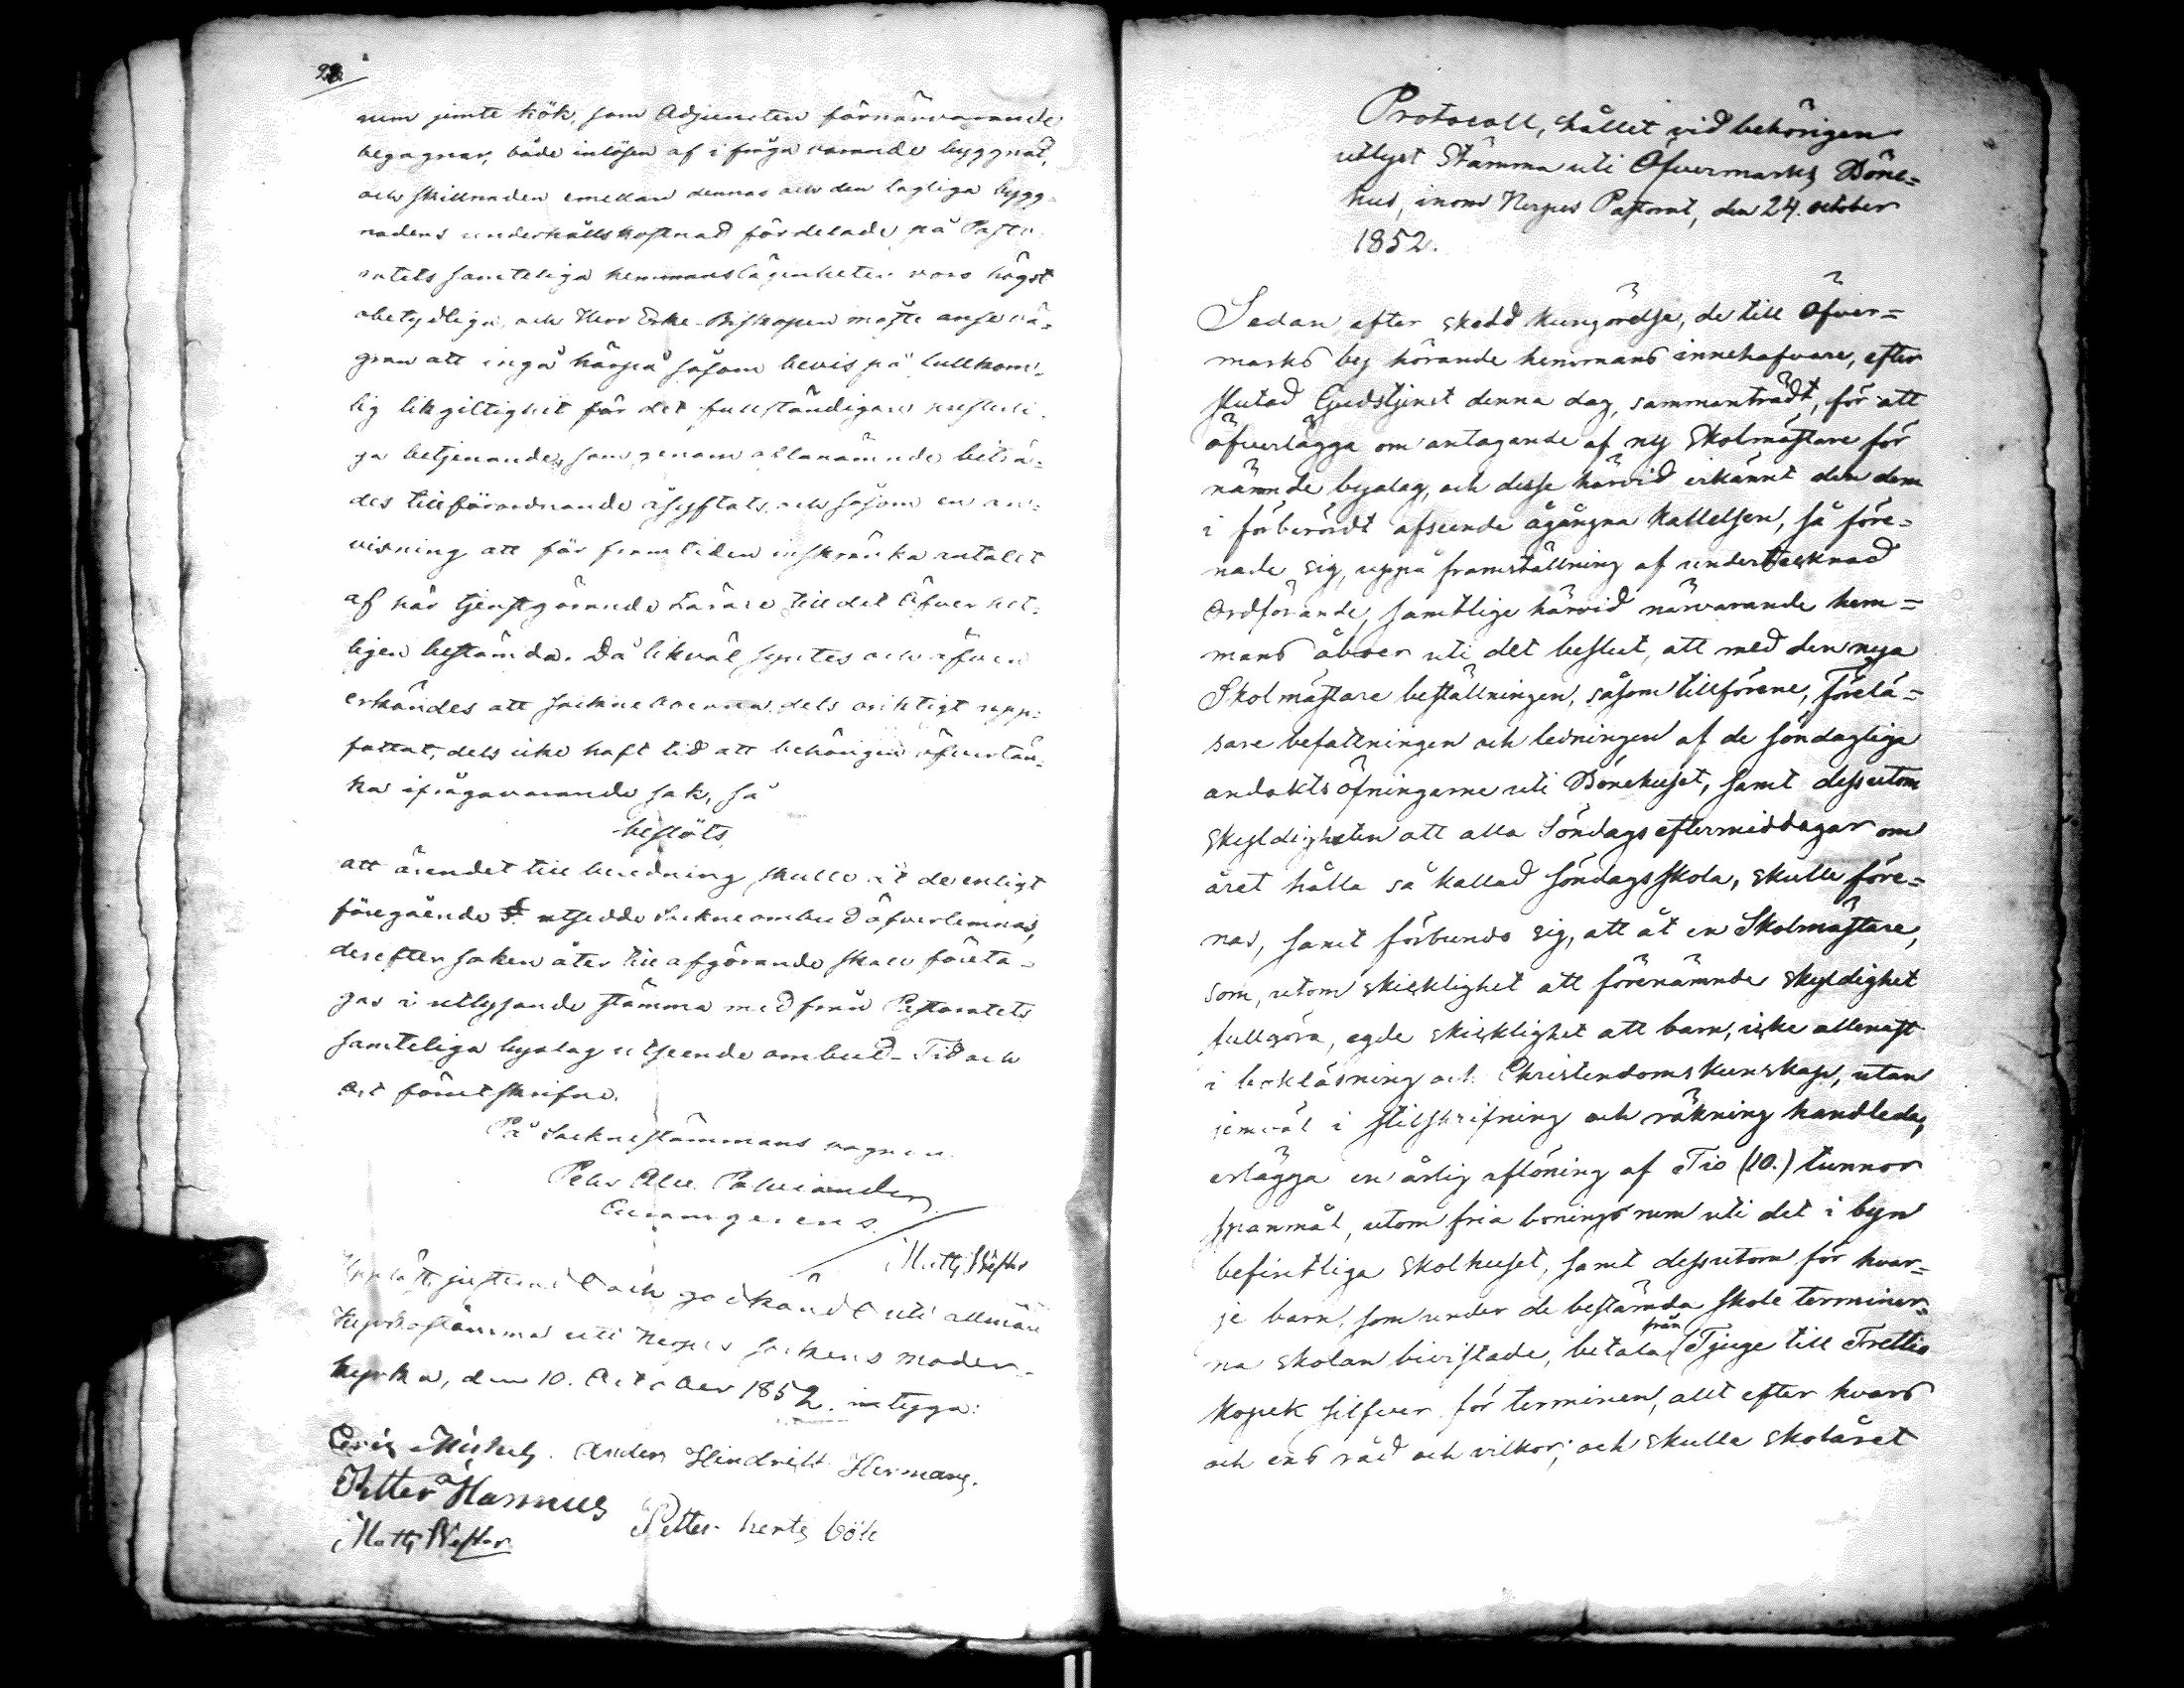 28.
rum jemte kök, som Adjuncten förnärvarande
begagnar, både inlösen af i fråga varande byggnad,
och skillnaden emellan dennas och den lagliga bygg-
nadens underhållskostnad fördelade på Pasto-
ratets samteliga hemmanslägenheter voro högst
obetydliga, och Herr Erke-Biskopen måste anse vä-
gran att ingå härpå såsom bevis på fullkom-
lig likgiltighet för det fullständigare
ga betjenande, som genom allanämnde biträ-
des tillförordnande åsyftats, och såsom en an-
visning att för framtiden inskränka antalet
af här tjenstgörande Lärare till det Öfverhet-
ligen bestämda. Då likväl syntes och äfven
erkändes att Socknemännen dels oriktigt upp-
fattat, dels icke haft tid att behörigen öfvertän-
ka ifrågavarande sak, så
beslöts
att ärendet till beredning skulle åt de enligt
föregående §. utsedde Sockneombud öfverlemnas,
derefter saken åter till afgörande skall företa-
gas i utlysande stämma med från Pastoratets
samteliga byalag utseende ombud. Tid och
Ort förutskrifne.
På Sockne stämmans vagnar
Pehr Alex.
Matts Wester
Uppläst, justeradt och godkändt uti allmän
Kyrkostämma uti Nerpes sockens moder-
kyrka, den 10. October 1852. intyga:
Eric Mickels. Anders Hindrik Hermans.
Petter Hannus Petter herts böle
Matts Wester
Protocoll, hållit vid behörigen
utlyst Stämma uti Öfvermarks Böne-
hus, inom Nerpes Pastorat, den 24. october
1852.
Sedan efter skedd kungörelse, de till Öfver-
marks by hörande hemmans innehafvare, efter
slutad Gudstjenst denna dag, sammanträdt, för att
öfverlägga om antagande af ny Skolmästare för
nämnde byalag, och desse härvid erkännt den dem
i förberördt afseende ågångna kallelsen, så före-
nade sig, uppå framställning af undertecknad
Ordförande, samtlige härvid närvarande hem-
mans åboer uti det beslut, att med den nya
Skolmästare beställningen, såsom tillförene, Förelä-
sare befattningen och ledningen af de söndagliga
andakts öfningarne uti Bönehuset, samt dessutom
skyldigheten att alla Söndags eftermiddagar om
året hålla så kallad söndagsskola, skulle före-
nas, samt förbundo sig, att åt en Skolmästare,
som, utom skicklighet att förenämnde skyldighet
fullgöra, egde skicklighet att barn, icke allenast
i bokläsning och Christendomskunskap, utan
jemväl i stilskrifning och räkning handleda,
erlägga en årlig aflöning af Tio (10.) tunnor
spanmål, utom fria boningsrum uti det i byn
befintliga skolhuset, samt dessutom för hvar-
je barn, som under de bestämda skole terminer-
na skolan bivistade, betala från Tjuge till Trettio
kopek silfver för terminen, allt efter hvars
och ens råd och vilkor; och skulle skolåret